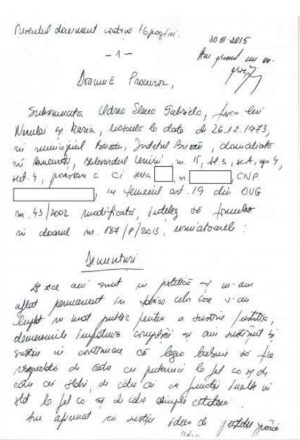 Prezentul document conține 16 pagini.
30.III.2015
- 1 -
Am primit un ex.
Doamnă Procuror,
Subsemnata Udrea Elena Gabriela, fiica lui
Neculai și Maria, născută la data de 26.12.1973,
în municipiul Buzău, Județul Buzău, domiciliată
în București, Bulevardul Unirii nr. 15, sc. A, ap. 4,
sect. 4, CI seria nr CNP
, în temeiul art. 19 din OUG
nr. 43/2002 modificată, înțeleg să formulez
în dosarul nr. 187/P/2013, următoarele:
Denunțuri
De zece ani sunt în politică și m-am
aflat permanent în tabăra celor care s-au
luptat în mod public pentru a susține justiția,
demersurile împotriva corupției și am susținut și
susțin în continuare că legea trebuie să fie
respectată de către cei puternici la fel ca și de
către cei slabi, de către cei cu funcții înalte în
stat la fel ca și de către simpli cetățeni.
Am afirmat că susțin ideea de justiție